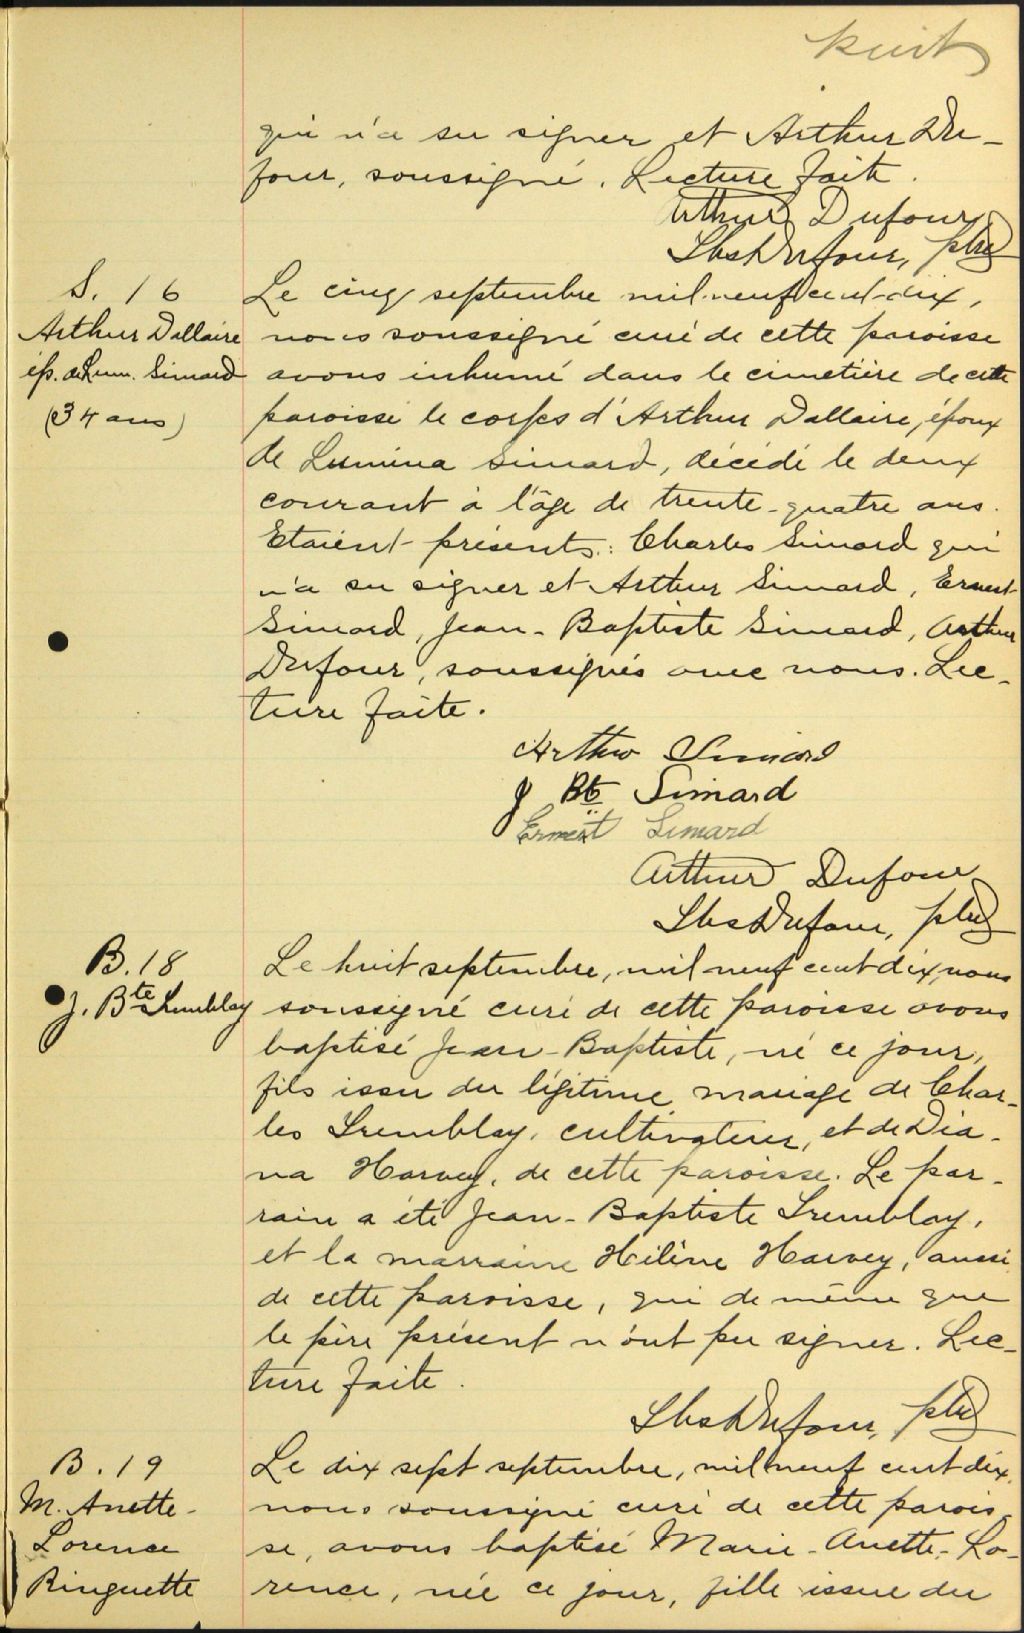 huit
qui n'a su signer et Arthur Du-
four, soussigné. Lecture faite.
Arthur Dufour
Dufour, ptre
S. 16
Arthur Dallaire
ép. de Lum. Simard
(34 ans)
Le cinq septembre mil neuf cent-dix,
nous soussigné curé de cette paroisse
avons inhumé dans le cimetière de cette
paroisse le corps d'Arthur Dallaire, époux
de Lumina Simard, décédé le deux
courant à l'âge de trente-quatre ans.
Etaient présents: Charles Simard qui
n'a su signer et Arthur Simard, Ernest
Simard, Jean-Baptiste Simard, Arthur
Dufour, soussignés avec nous. Lec-
ture faite.
Arthur Simard
J Bte Simard
Ernest Simard
Arthur Dufour
Dufour, ptre
B. 18
J. Bte Tremblay
Le huit septembre, mil neuf cent dix, nous
soussigné curé de cette paroisse avons
baptisé Jean-Baptiste, né ce jour,
fils issu du légitime mariage de Char-
les Tremblay, cultivateur, et de Dia-
na Harvey, de cette paroisse. Le par-
rain a été Jean-Baptiste Tremblay,
et la marraine Hélène Harvey, aussi
de cette paroisse, qui de même que
le père présent n'ont pu signer. Lec-
ture faite.
Dufour, ptre
B. 19
M. Anette-
Lorence
Ringuette
Le dix sept septembre, mil neuf cent dix,
nous soussigné curé de cette parois-
se, avons baptisé Marie-Anette-Lo-
rence, née ce jour, fille issue du